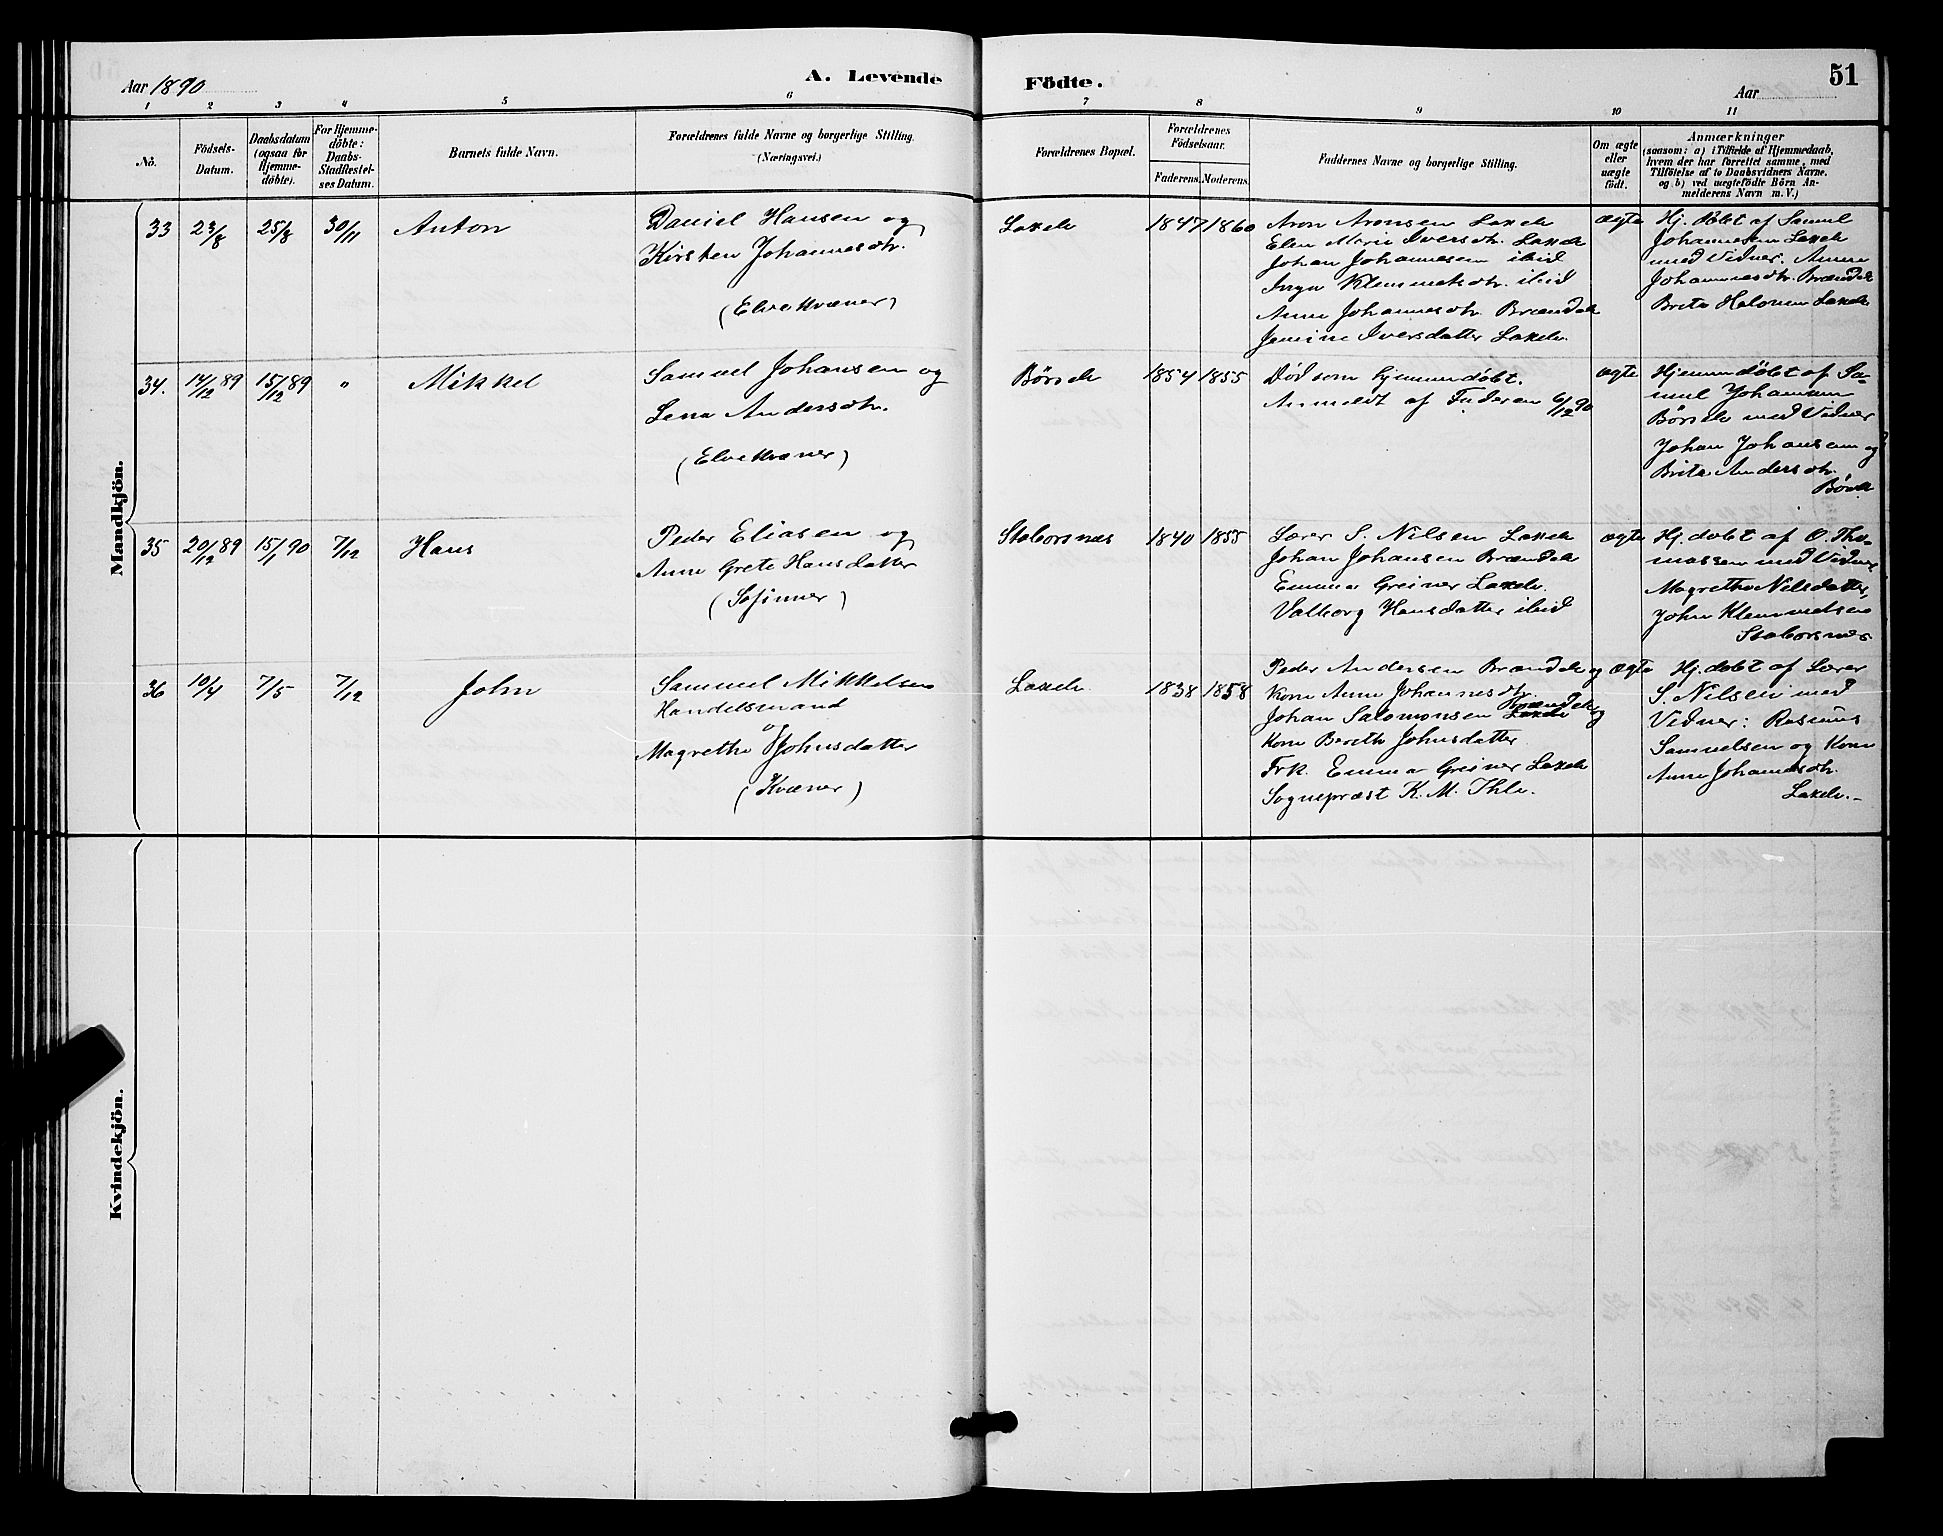 Aar 1890
A. Levende
Födte.
Aar
51
1 2 3 4 5 6 7 8 9 10 11
No.
Födsels-
Datum.
Daabsdatum
(ogsaa for
Hjemme-
döbte).
For Hjemme-
döbte:
Daabs-
Stadfestel-
ses Datum.
Barnets fulde Navn.
Forældrenes fulde Navne og borgerlige Stilling.
(Næringsvei.)
Forældrenes Bopæl.
Forældrenes
Födselsaar.
Faderens. Moderens.
Faddernes Navne og borgerlige Stilling.
Om ægte
eller
uægte
födt.
Anmærkninger
(saasom: a) i Tilfælde af Hjemmedaab,
hvem der har forrettet samme, med
Tilföielse af to Daabsvidners Navne.
og b) ved uægtefödte Börn An-
melderens Navn m. V.)
Mandkjön.
33 23/8 25/8 30/11 Anton
Daniel Hansen og
Kirsten Johannesdtr.
(Elvekvæner)
Lakselv 1847 1860
Aron Aronsen Lakselv
Elen Marie Iversdtr. Lakselv
Johan Johannesen ibid
Inga Klemmetsdtr. ibid
Anne Johannesdtr. Brændelv
Jemine Iversdatter Lakselv.
ægte
Hj. döbt af Samuel
Johannesen Lakselv
med Vidner. Anne
Johannesdtr. Brændelv
Brita Halonen Lakselv
34. 14/12 89 15/12 89 " Mikkel
Samuel Johansen og
Lena Andersdtr.
(Elvekvæner)
Börselv 1854 1855
Död som hjemmedöbt.
Anmeldt af Faderen 6/12 90
ægte
Hjemmedöbt af Sa-
muel Johannsen
Börselv med Vidner
Johan Johansen og
Brita Andersdtr.
Börselv
35 20/12 89 15/1 90 7/12 Hans
Peder Eliasen og
Anne Grete Hansdatter
(Söfinner)
Staborsnæs 1840 1855
Lærer S. Nilsen Lakselv
Johan Johansen Brændelv
Emma Greiner Lakselv.
Valborg Hansdatter ibid
ægte
Hj. döbt af O. Tho-
massen med Vidner
Magrethe Nilsdatter,
John Klemmetsen
Staborsnæs
36 10/4 7/5 7/12 John
Samuel Mikkelsen
Handelsmand
og
Magrethe Johnsdatter
(Kvæner)
Lakselv 1838 1858
Peder Andersen Brændelv og
Kone Anne Johannesdtr.
Johan Salomonsen Brændelv og
Kone Bereth Johnsdatter
Frk. Emma Greiner Lakselv
Sognepræst K. M. Ihle.
ægte
Hj. döbt af Lærer
S. Nilsen med
Vidner: Rasmus
Samuelsen og Kone
Anne Johannesdtr.
Lakselv.-
Kvindekjön.